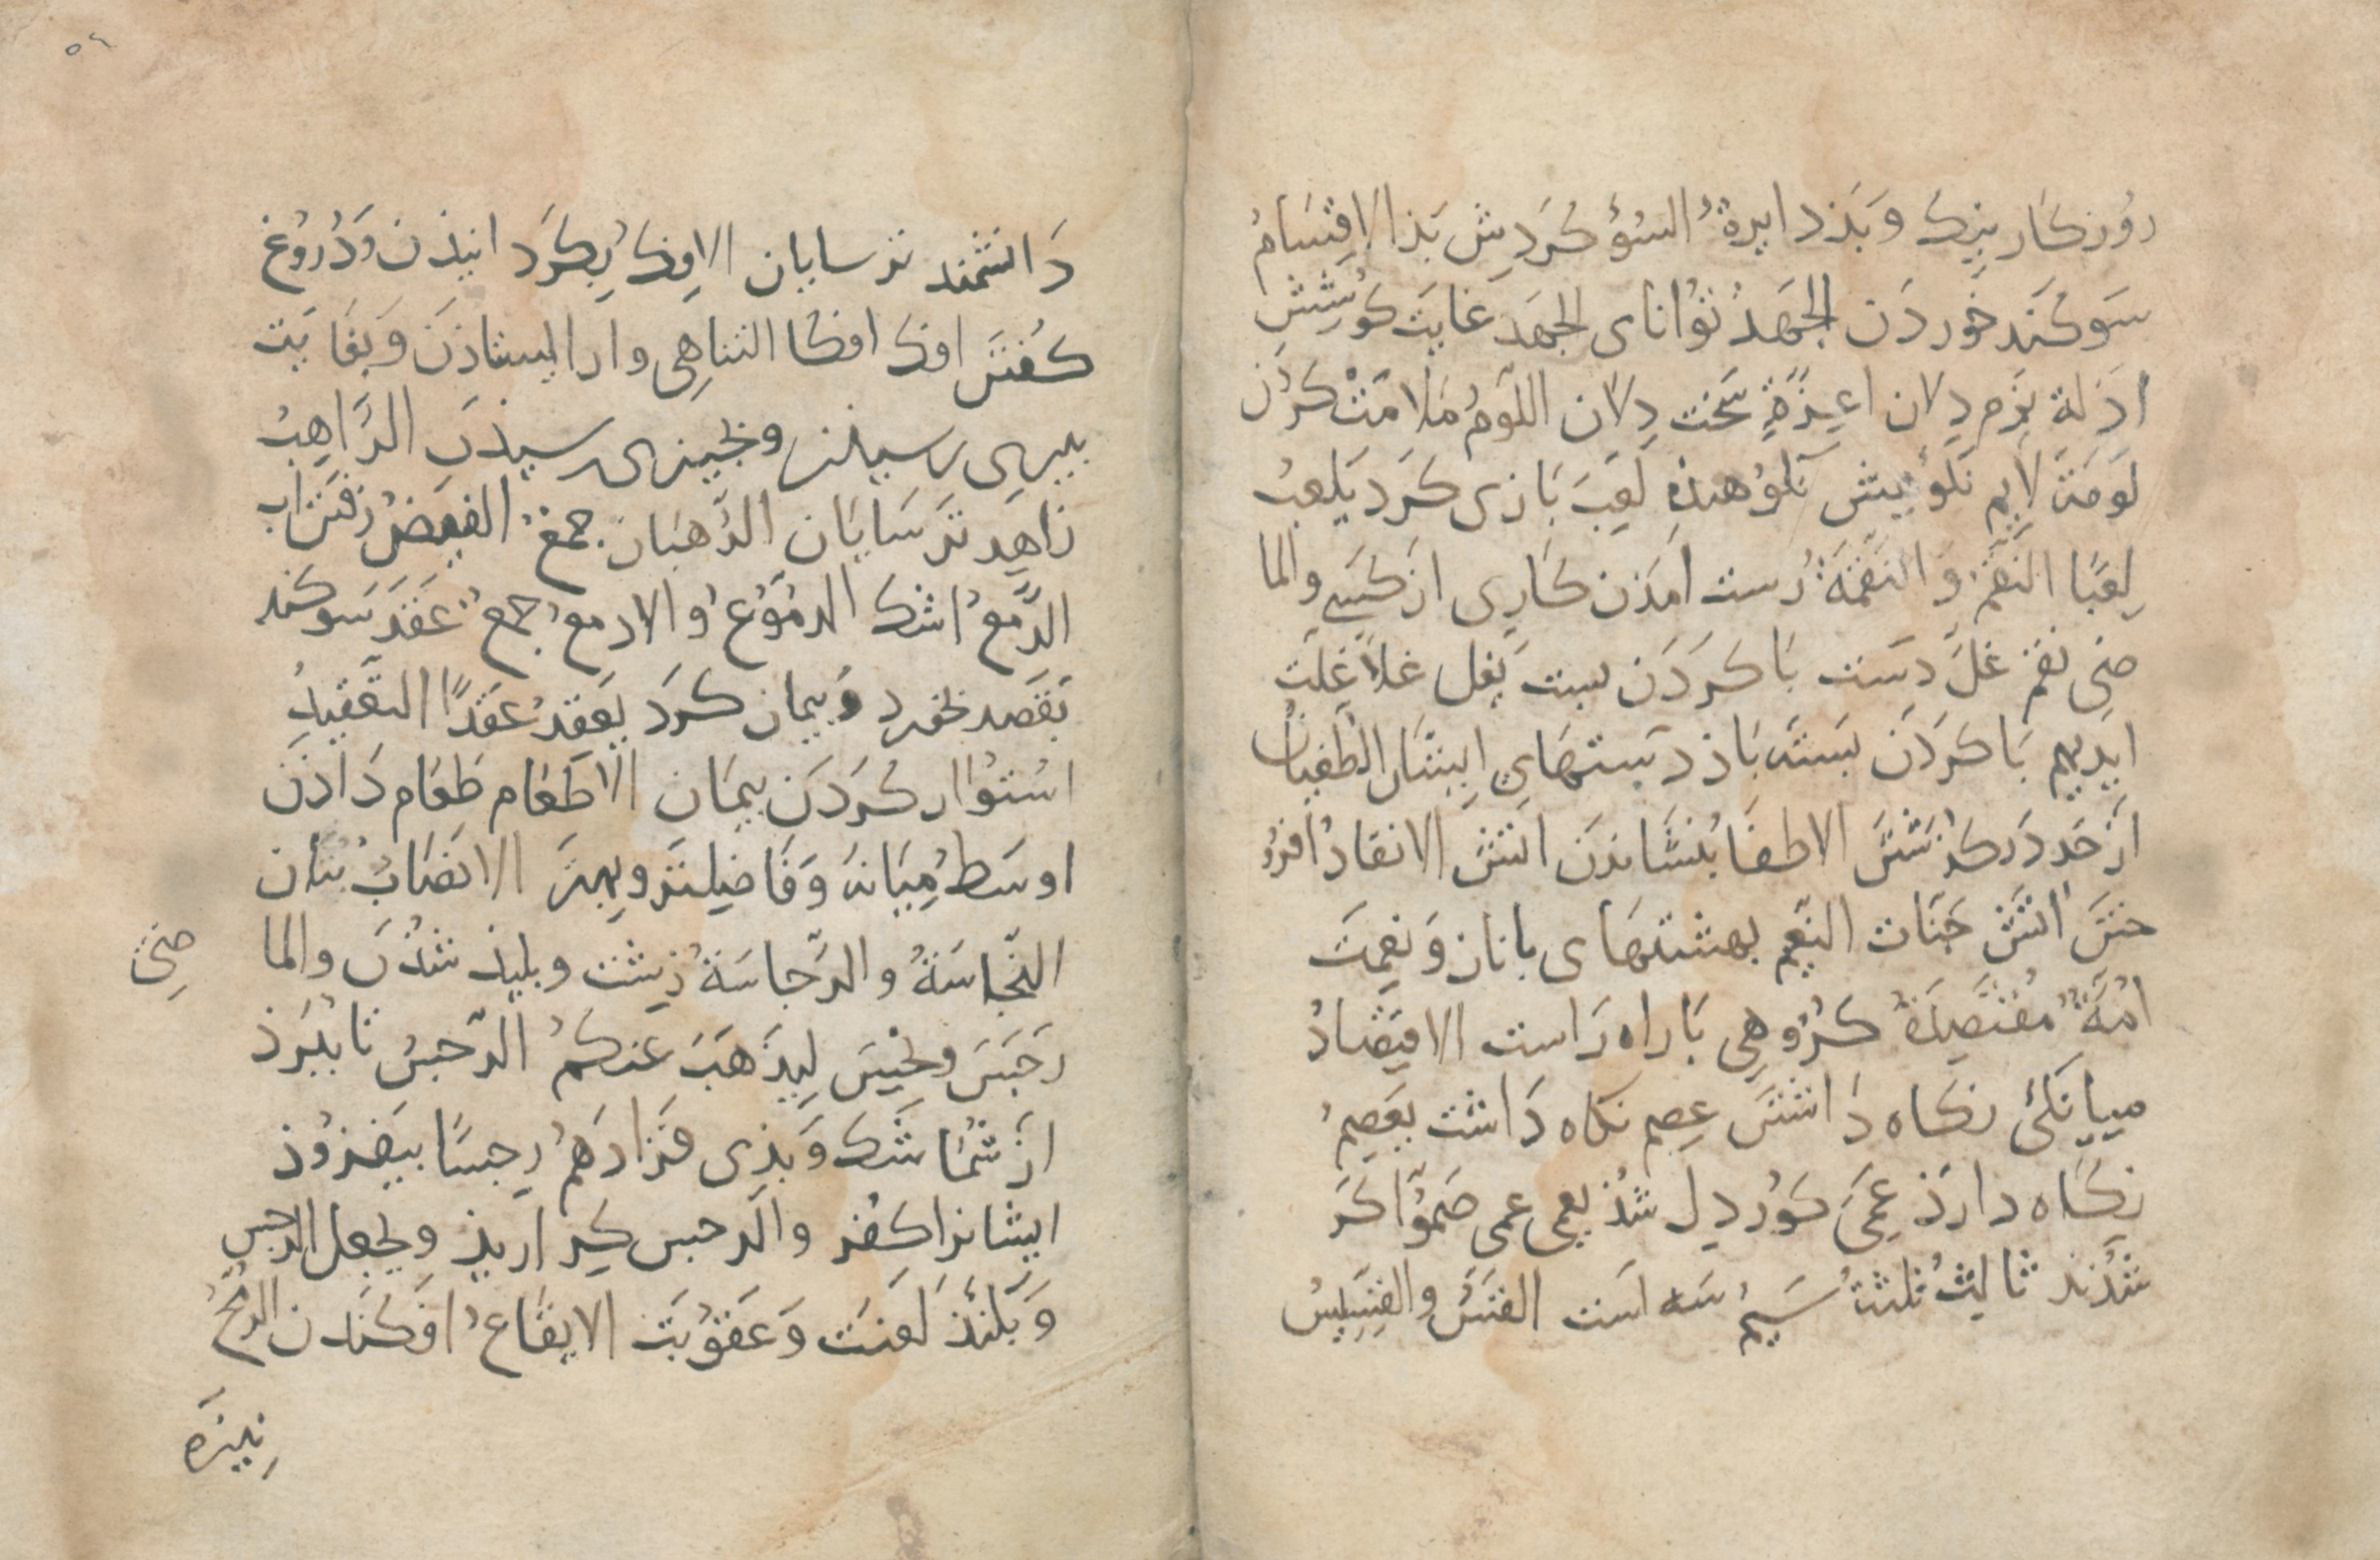 روزكار نيك و بذ دايرةُ السوُ كردش بذ الاقتسامُ
سوكند خوردن الجهدُ توانای الجهد غايت كوشش
اذلة نرم دلان اعزةٍ سخت دلان اللومُ ملامت كردن
لومة لايم نكوهش نكوهنده لعب بازی كرد يلعبُ
لعبًا النقم و النقمةُ زشت امذن كاری از كسی والما
ضی نقم غل دست با كردن بست يغل غلا غلت
ايديهم با كردن بسته باذ دستهای ايشان الطغيان
از حد در كذشتن الاطفا بنشاندن اتش الايقادُ افرو
ختن اتش جنات النعيم بهشتهای با ناز و نعمت
امةٌ مقتصدةٌ كروهی با راه راست الاقتصادُ
ميانكی نكاه داشتن عصم نكاه داشت يعصمُ
نكاه دارذ عمی كوردل شذ يعمی عمی صموا كر
شدند ثالثُ ثلثة سيمُ سه است القسُ والقسيسُ
دانشمند ترسايان الافك بكردانيذن و دروغ
كفتن افك افكا التناهی وا ايستاذن و بغايت
بيری رسيدن و بچيزی رسيذن الراهبُ
زاهد ترسايان الرهبان جمعُ الفيضُ رفتن اب
الدمعُ اشك الدموعُ و الادمعُ جمعُ عقد سوكند
بقصد بخورد و پيمان كرد يعقدُ عقدًا التعقيدُ
استوار كردن پيمان الاطعام طعام داذن
اوسط ميانه و فاضلتر و بهتر الانصابُ بتان
النجاسةُ والرجاسةُ زشت و بليذ شذن والما
ضی
رجس و نجس ليذهب عنكمُ الرجس تا ببرذ
از شما شك و بذی فزادهمُ رجسًا بيفزوذ
ايشانرا كفر والرجس كر اريذ و يجعل الرجس
و بلنذ لعنت و عقوبت الايقاعُ افكندن الرمحُ
نيزه